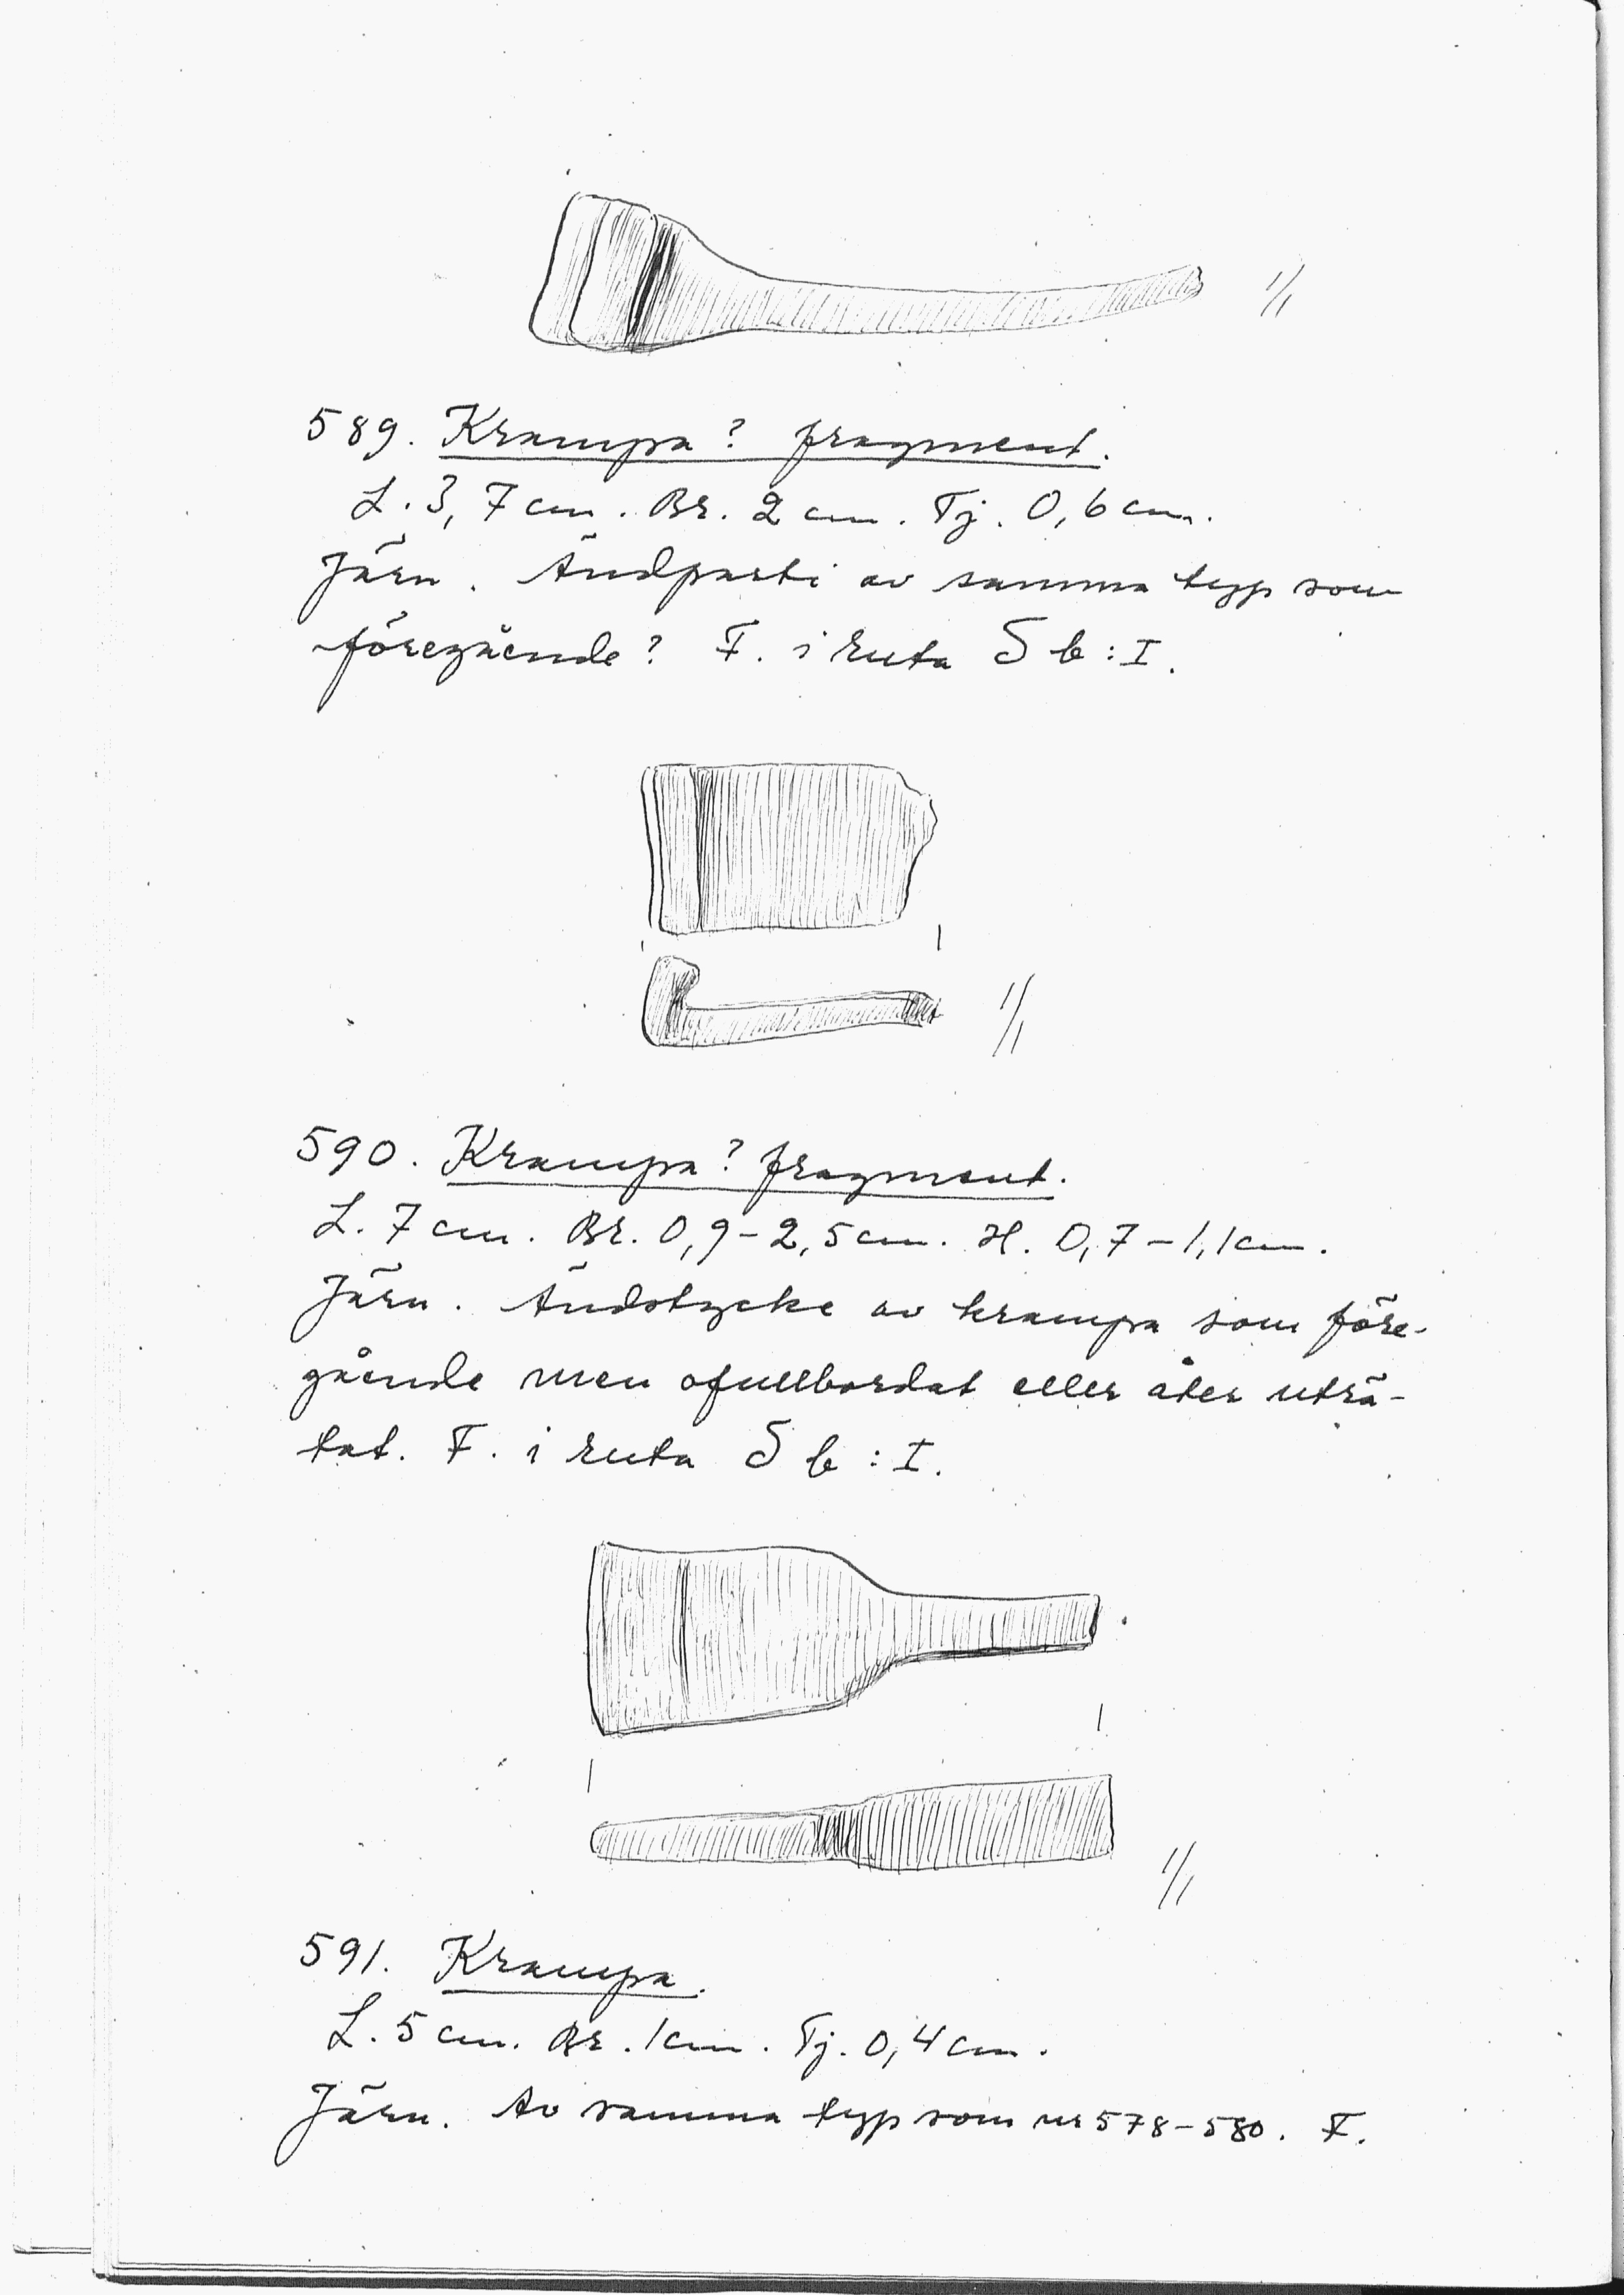 1/1
589. Krampa? fragment.
L. 3,7 cm. Br. 2 cm. Tj. 0,6 cm.
Järn. Ändparti av samma typ som
föregående? F. i ruta S b : I.
1/1
590. Krampa? fragment.
L. 7 cm. Br. 0,9-2,5 cm. H. 0,7-1,1 cm.
Järn. Ändstycke av krampa som före-
gående men ofullbordat eller åter uträ-
tat. F. i ruta S b : I.
1/1
591. Krampa.
L. 5 cm. Br. 1 cm. Tj. 0,4 cm.
Järn. Av samma typ som nr 578-580. F.